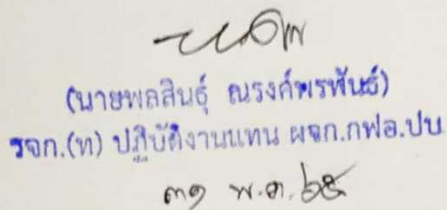 (นายพลสินธุ์ ณรงค์พรพันธ์)
รจก.(ท) ปฏิบัติงานแทน ผจก.กฟอ.ปบ
๓๑ พ.ค. ๖๕